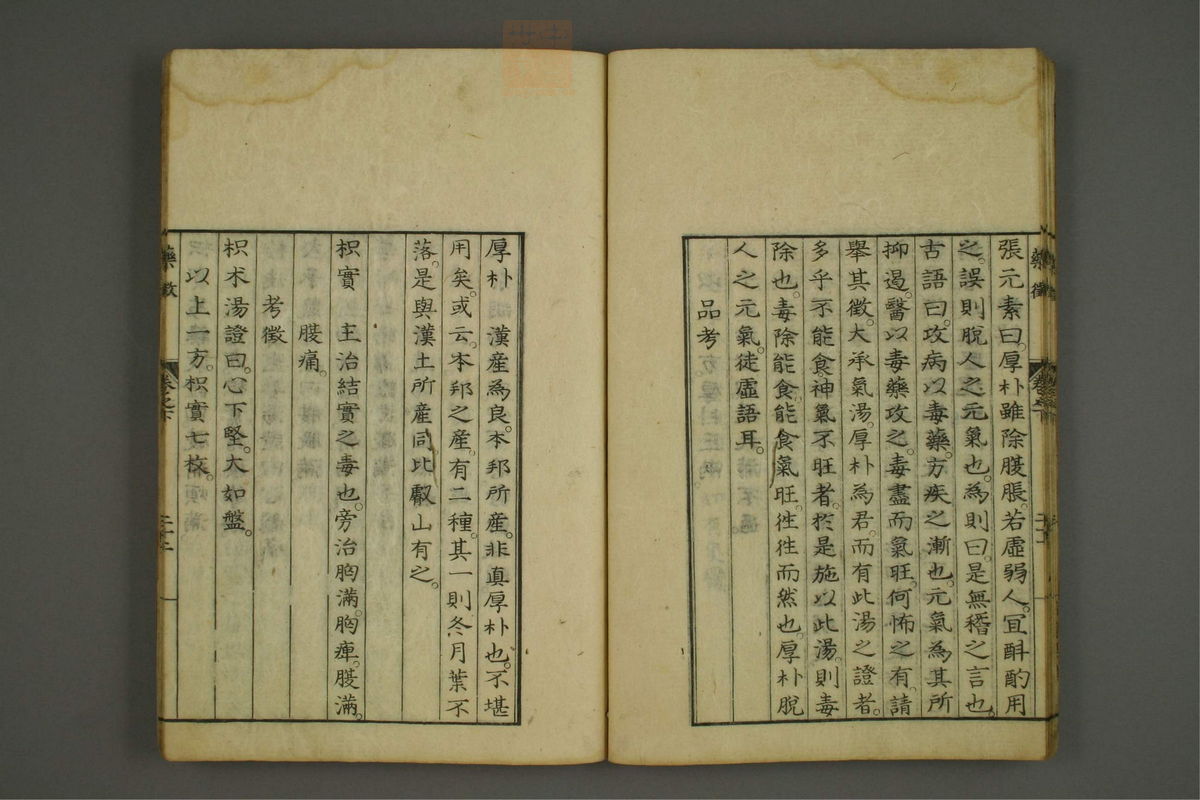 張元素曰。厚朴雖除腹脹。若虛弱人。宜斟酌用
之。誤則脫人之元氣也。為則曰。是無稽之言也。
古語曰。攻病以毒藥。方疾之漸也。元氣為其所
抑遏。醫以毒藥攻之。毒盡而氣旺。何怖之有。請
舉其徵。大承氣湯。厚朴為君。而有此湯之證者。
多乎不能食。神氣不旺者。於是施以此湯。則毒
除也。毒除能食。能食氣旺。往往而然也。厚朴脫
人之元氣。徒虛語耳。
品考
厚朴 漢産為良。本邦所産。非真厚朴也。不堪
用矣。或云。本邦之産。有二種。其一則冬月葉不
落。是與漢土所産同。比叡山有之。
枳實 主治結實之毒也。旁治胸滿。胸痺。腹滿。
腹痛。
考徵
枳朮湯證曰。心下堅。大如盤。
以上一方。枳實七枚。
藥徵
卷之下